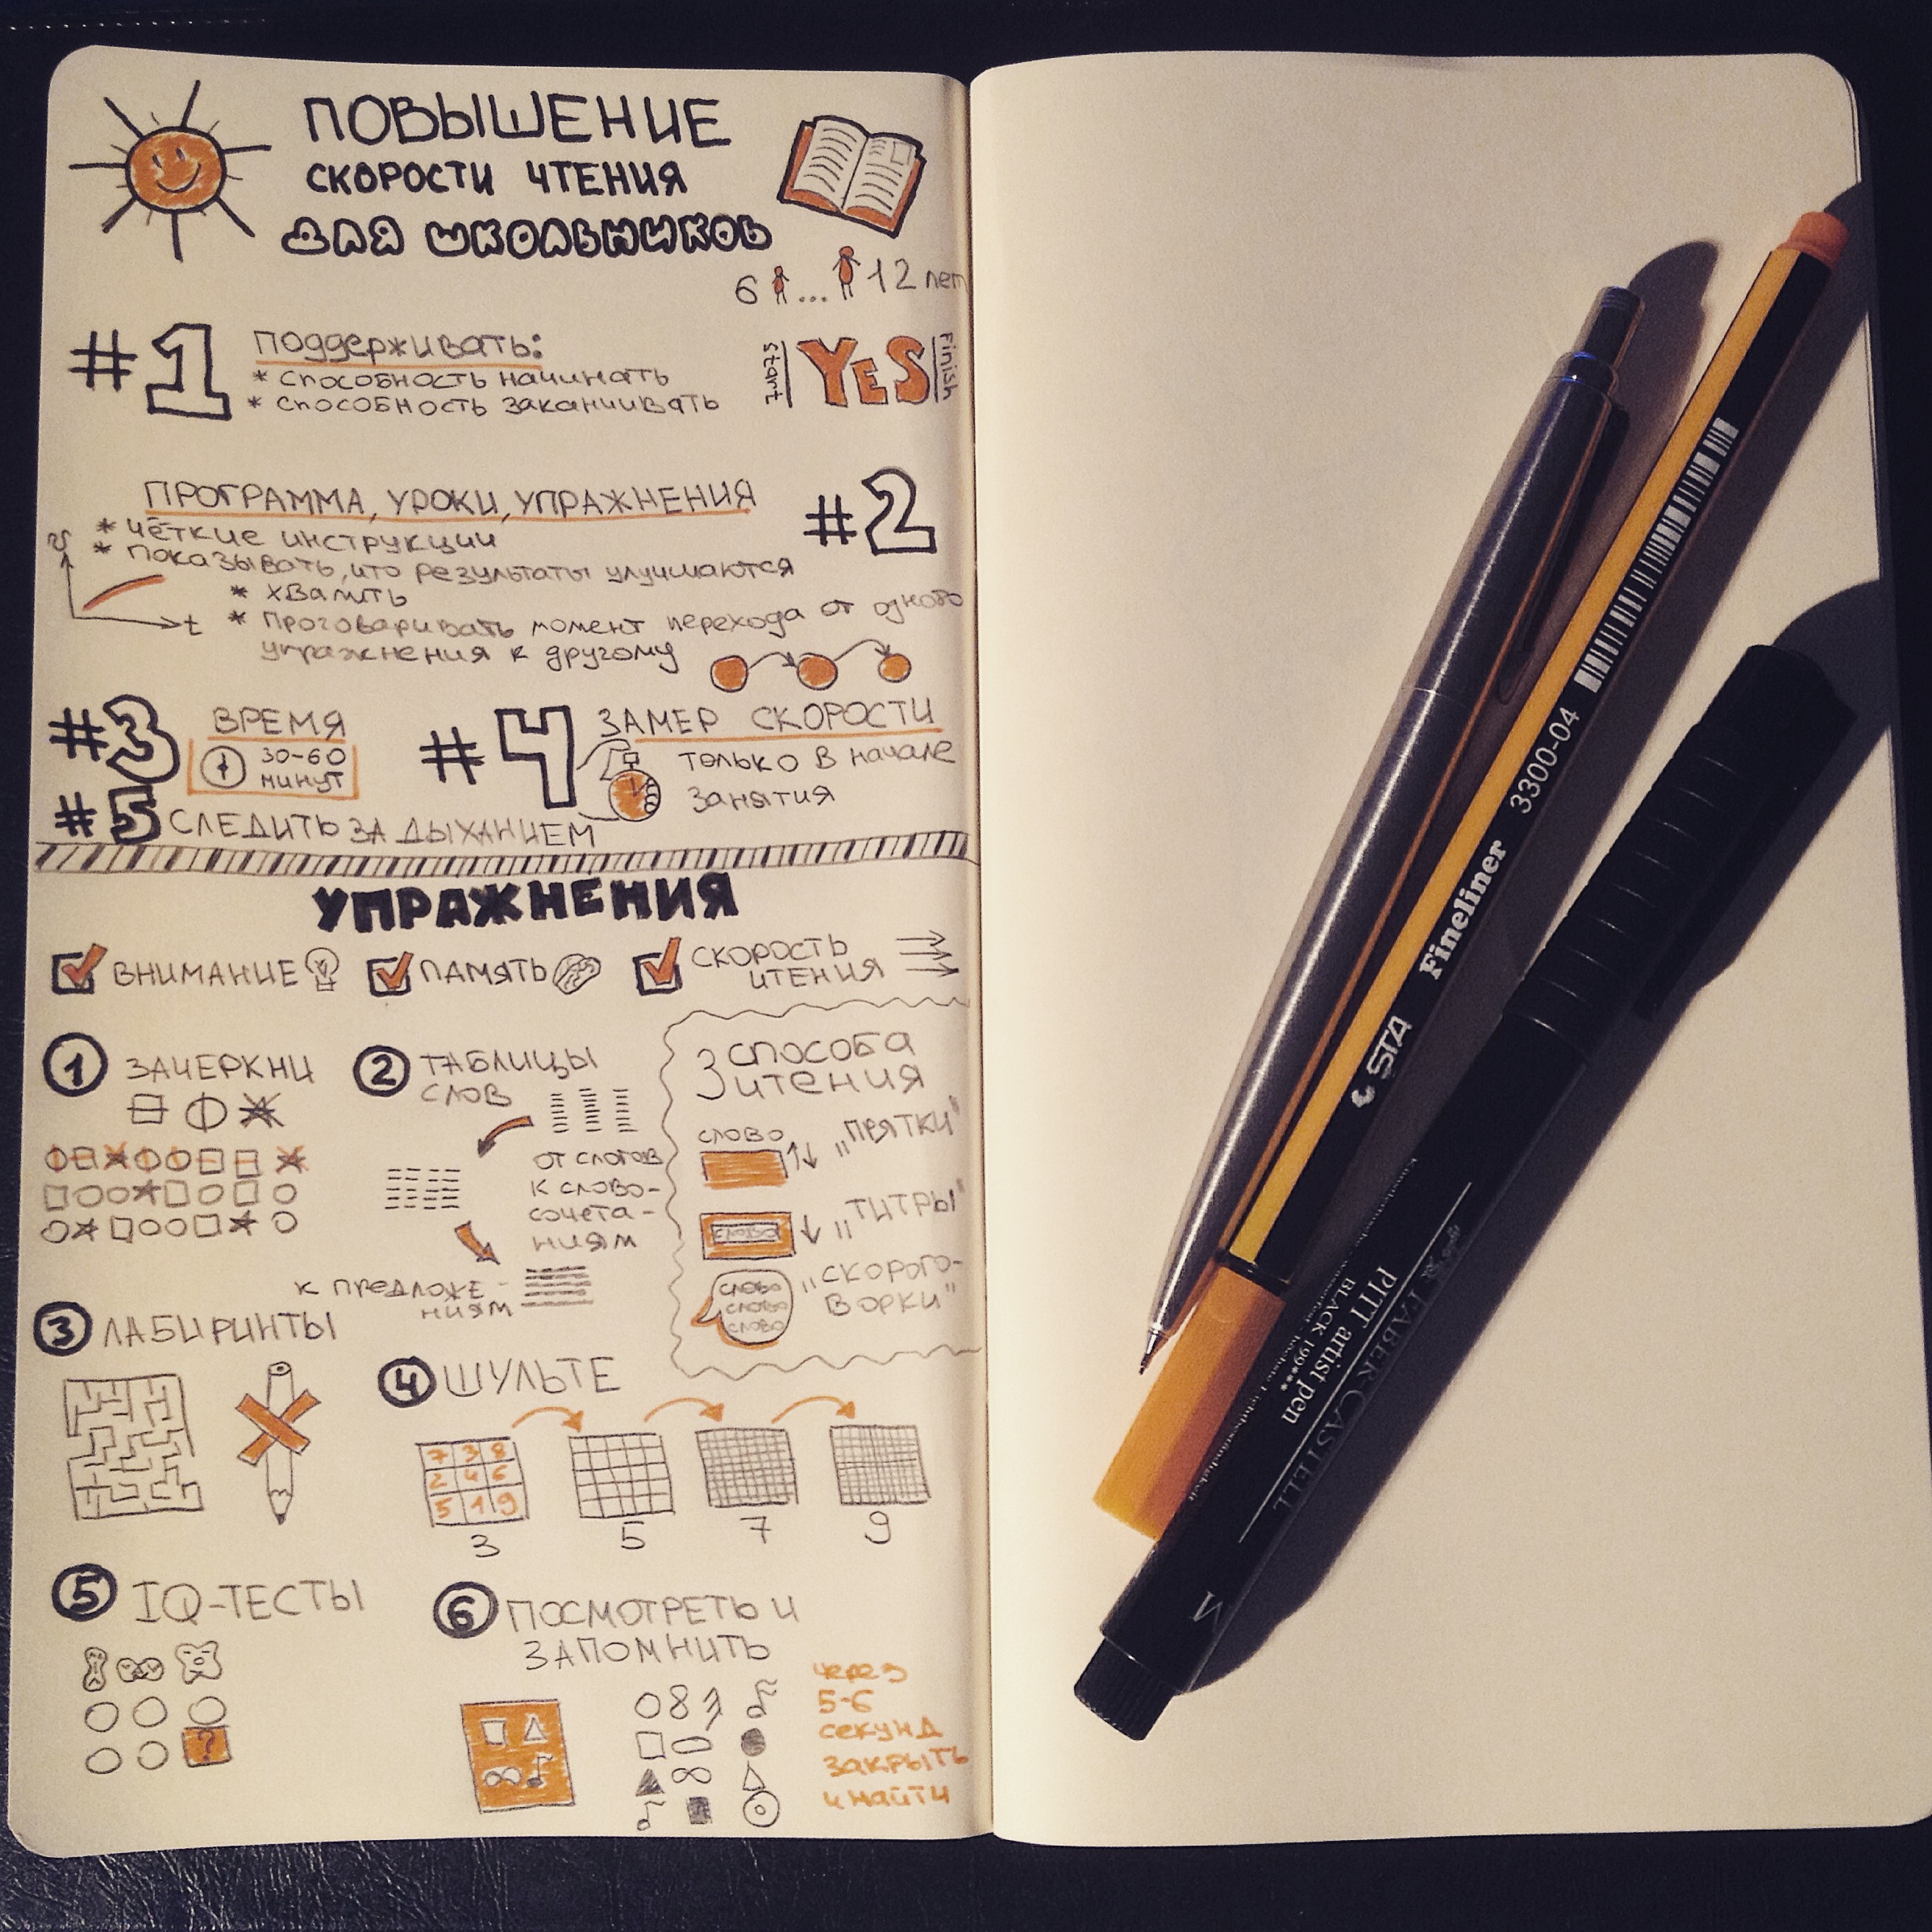 ПОВЫШЕНИЕ
СКОРОСТИ ЧТЕНИЯ
ДЛЯ ШКОЛЬНИКОВ
6 ... 12 лет
#1
Поддерживать:
* способность начинать
* способность заканчивать
start
YES
Finish
ПРОГРАММА, УРОКИ, УПРАЖНЕНИЯ
#2
* чёткие инструкции
* показывать, что результаты улучшаются
* хвалить
* проговаривать момент перехода от одного
упражнения к другому
v
t
#3
ВРЕМЯ
30-60
минут
#4
ЗАМЕР СКОРОСТИ
только в начале
занятия
#5 СЛЕДИТЬ ЗА ДЫХАНИЕМ
УПРАЖНЕНИЯ
ВНИМАНИЕ
ПАМЯТЬ
СКОРОСТЬ
ЧТЕНИЯ
1 ЗАЧЕРКНИ
2 ТАБЛИЦЫ
СЛОВ
от слогов
к слово-
сочета-
ниям
к предложе-
ниям
3 способа
чтения
слово
"ПРЯТКИ"
слово
"ТИТРЫ"
слово
слово
слово
"СКОРОГО-
ВОРКИ"
3 ЛАБИРИНТЫ
4 ШУЛЬТЕ
7 3 8
2 4 6
5 1 9
3
5
7
9
5 IQ-ТЕСТЫ
?
6 ПОСМОТРЕТЬ И
ЗАПОМНИТЬ
через
5-6
секунд
закрыть
и найти
STA
Fineliner 3300-04
FABER CASTELL
PITT artist pen
BLACK 199***
M